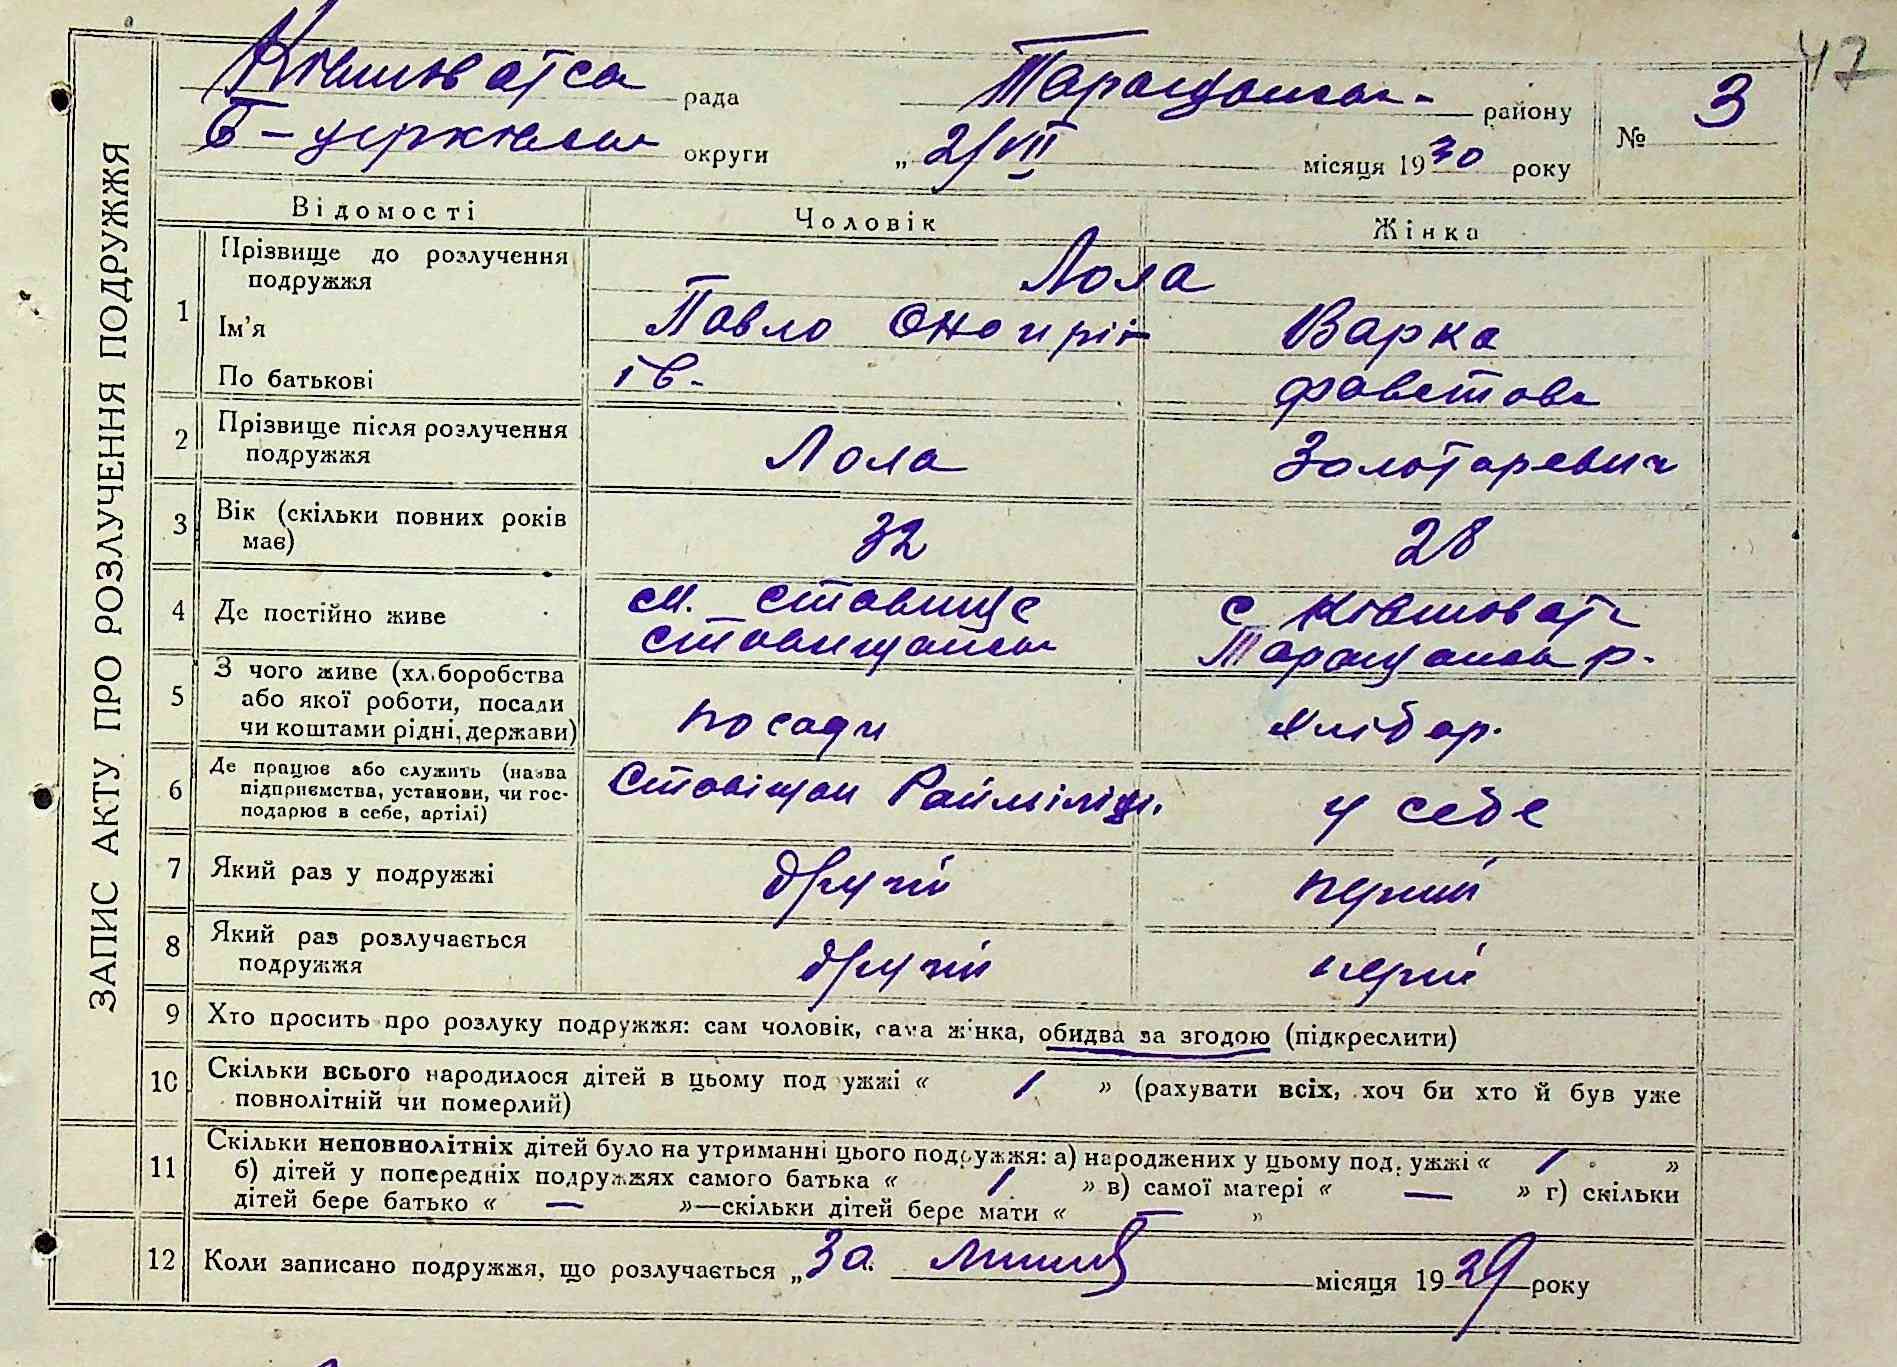 47
ЗАПИС АКТУ ПРО РОЗЛУЧЕННЯ ПОДРУЖЖЯ
Ківшоватсь рада Таращансь- району № 3
Б-церківськ округи „ 2/VII місяця 1930 року
Відомості Чоловік Жінка
1 Прізвище до розлучення
подружжя Лола
Ім'я Павло Оноприі- Варка
По батькові ів- Фавстовн
2 Прізвище після розлучення
подружжя Лола Золотаревич
3 Вік (скільки повних років
має) 32 28
4 Де постійно живе м. Ставище с Ківшоват
Ставищанськ Таращанськ р.
5 З чого живе (хліборобства
або якої роботи, посади
чи коштами рідні, держави) посади хлібор.
6 Де працює або служить (назва
підприємства, установи, чи гос-
подарює в себе, артілі) Ставіщан Райміліц. у себе
7 Який раз у подружжі другий перший
8 Який раз розлучається
подружжя другий перш
9 Хто просить про розлуку подружжя: сам чоловік, сама жінка, обидва за згодою (підкреслити)
10 Скільки всього народилося дітей в цьому подружжі « 1 » (рахувати всіх, хоч би хто й був уже
повнолітній чи померлий)
11 Скільки неповнолітніх дітей було на утриманні цього подружжя: а) народжених у цьому подружжі « 1 »
б) дітей у попередніх подружжях самого батька « 1 » в) самої матері « — » г) скільки
дітей бере батько « — »—скільки дітей бере мати « — »
12 Коли записано подружжя, що розлучається „ місяця 1929 року